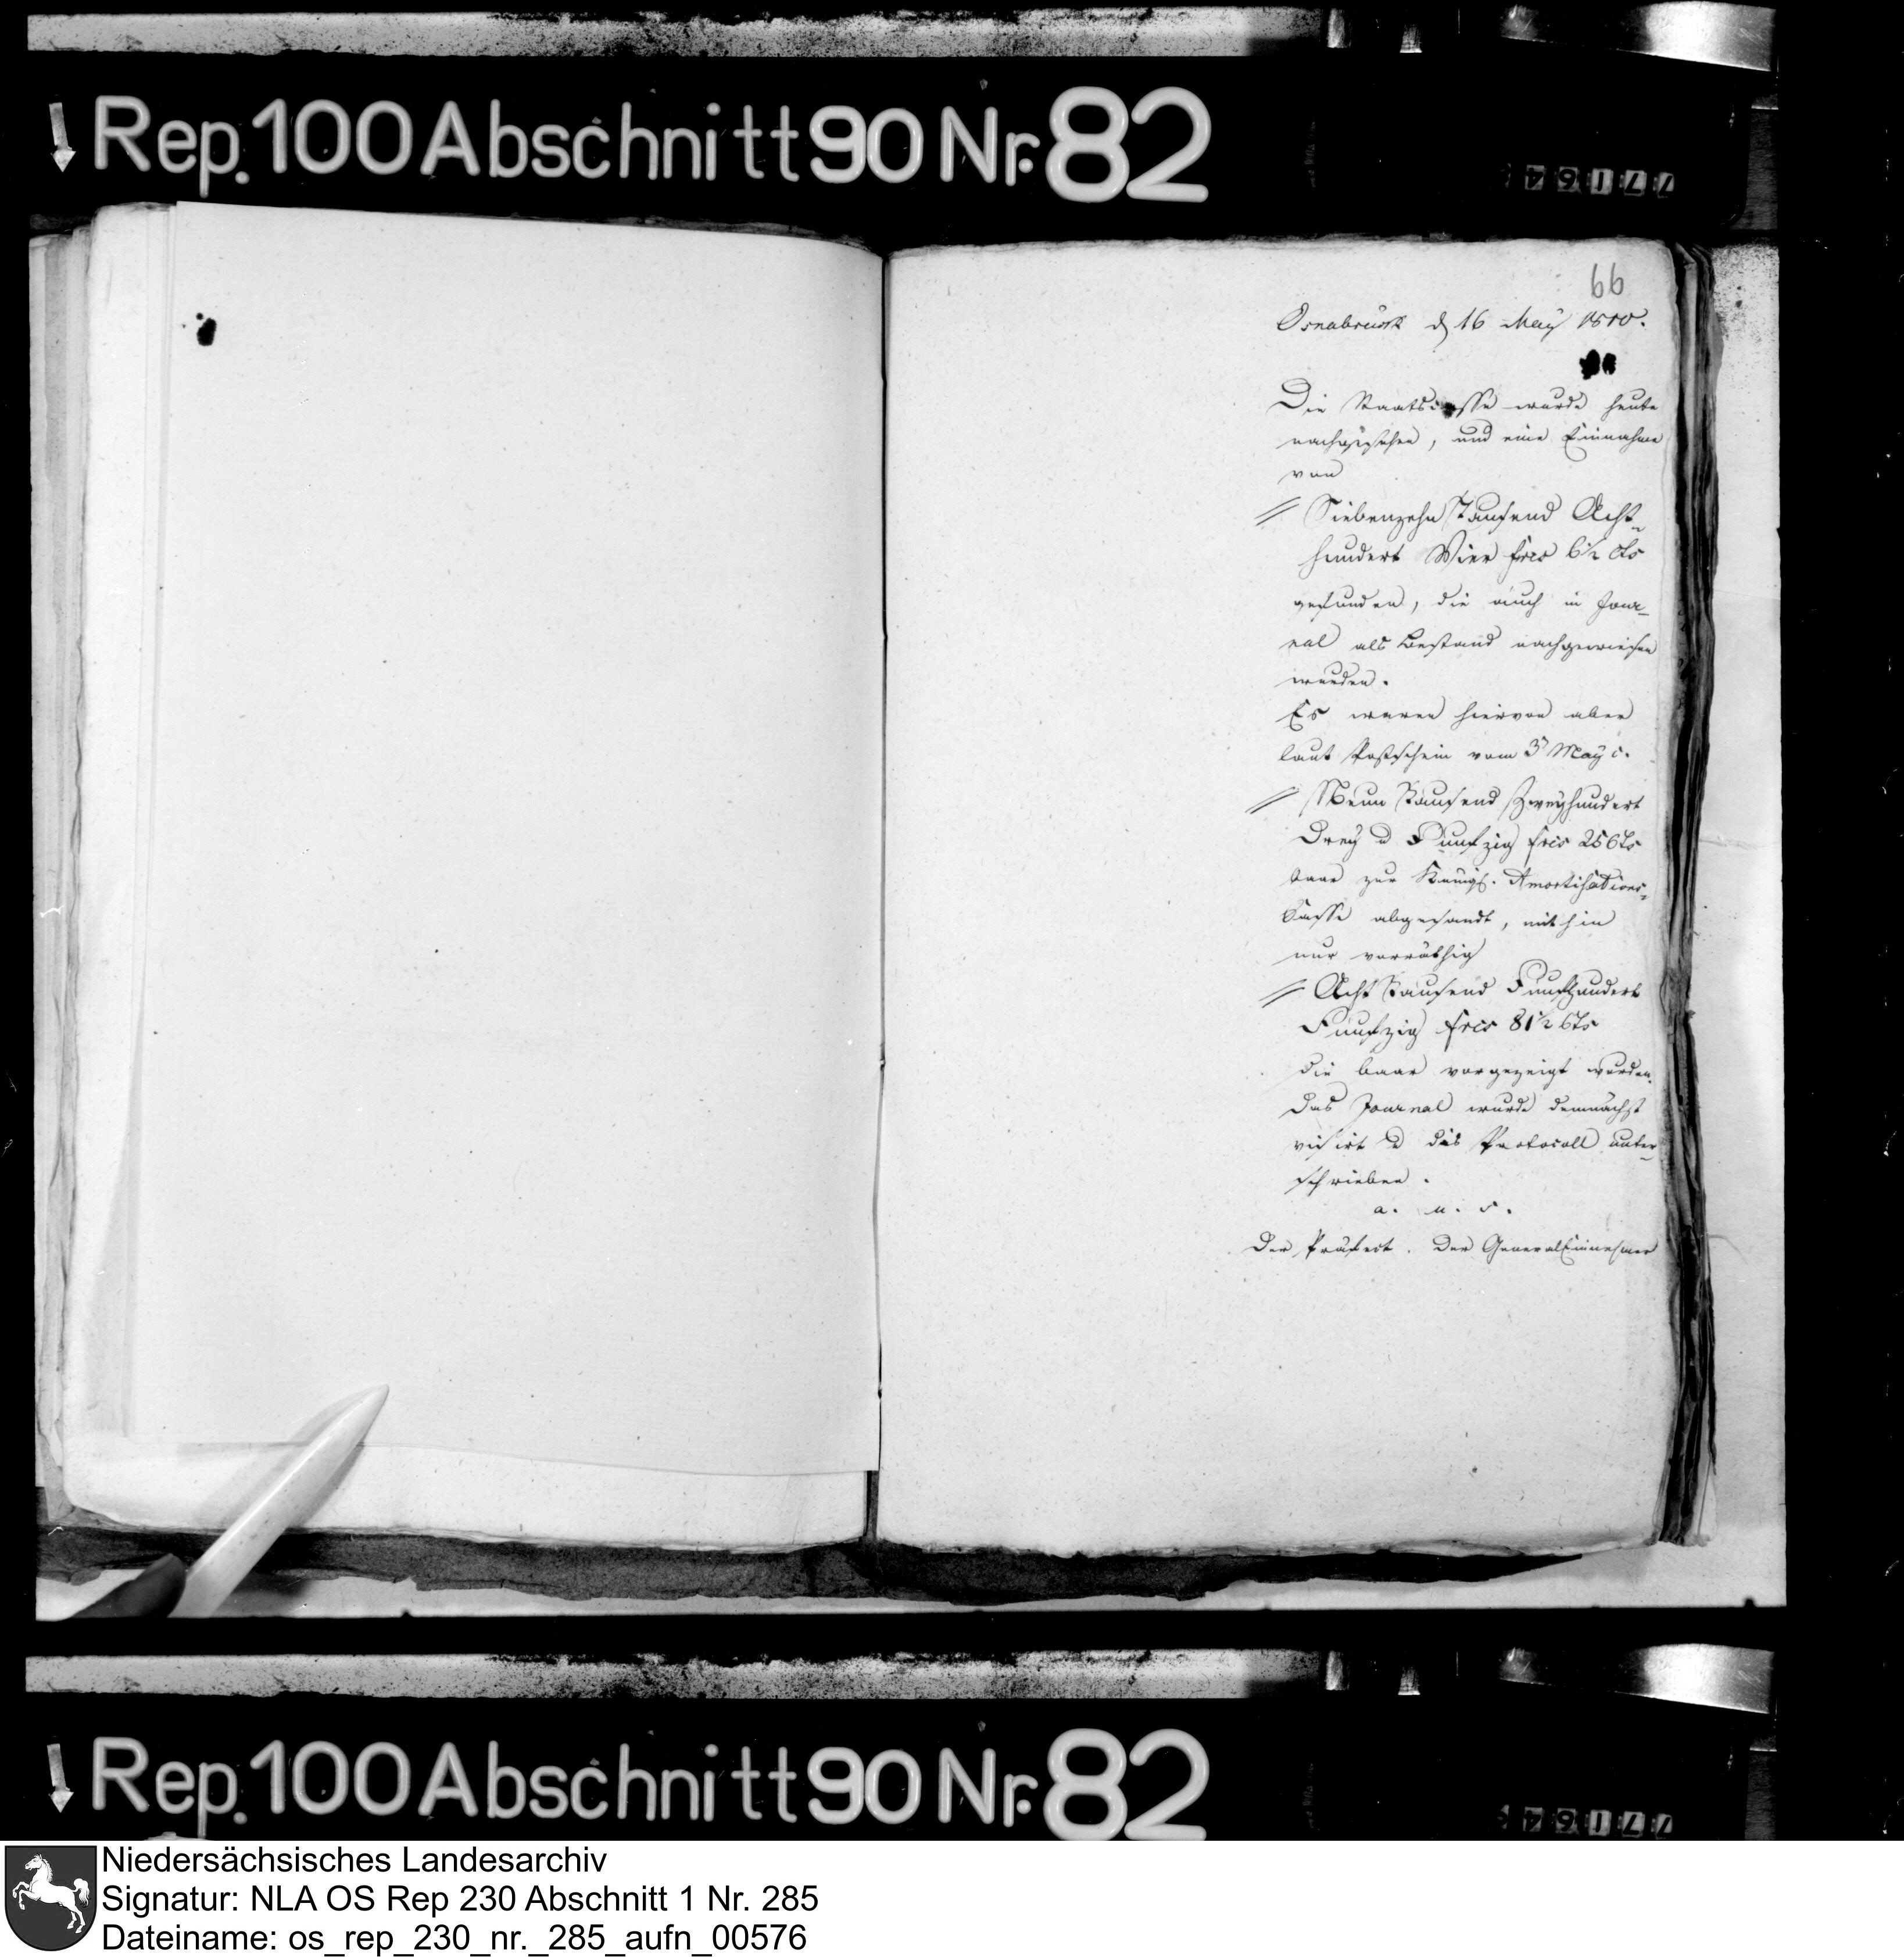 Rep. 100 Abschnitt 90 Nr. 82
66
Osnabrück d 16 May 1810.
Die Staatscasse wurde heute
nachgesehen, und eine Einnahme
von
// Siebenzehn Tausend Acht-
hundert Vier frcs 6½ Cts
gefunden, die auch in Jour-
nal als Bestand nachgewiesen
wurden.
Es waren hiervon aber
laut Postschein vom 3 May c.
// Neun Tausend Zweyhundert
Drey u Funfzig frcs 25 Cts
baar zur Königl. Amortisations-
Casse abgesandt, mithin
nur vorräthig
// Acht Tausend Funfhundert
Funfzig frcs 81½ Cts
die baar vorgezeigt wurden.
Das Journal wurde demnächst
visirt u das Protocoll unter-
schrieben.
a. u. s.
Der Präfect. Der GeneralEinnehmer
Rep. 100 Abschnitt 90 Nr. 82
Niedersächsisches Landesarchiv
Signatur: NLA OS Rep 230 Abschnitt 1 Nr. 285
Dateiname: os_rep_230_nr._285_aufn_00576